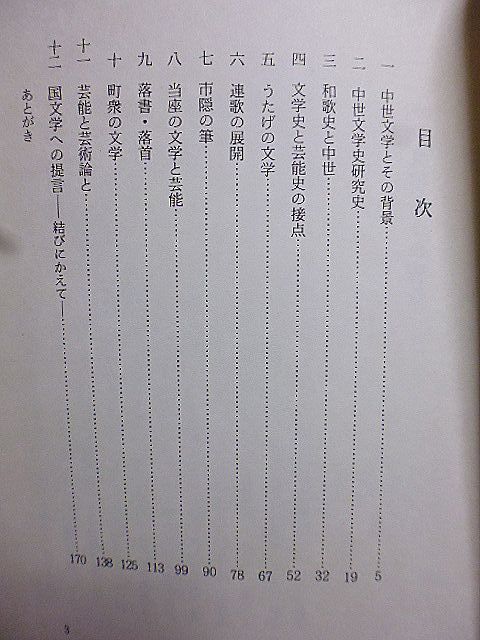 目次
一 中世文学とその背景……5
二 中世文学史研究史……19
三 和歌史と中世……32
四 文学史と芸能史の接点……52
五 うたげの文学……67
六 連歌の展開……78
七 市隠の筆……90
八 当座の文学と芸能……99
九 落書・落首……113
十 町衆の文学……125
十一 芸能と芸術論と……138
十二 国文学への提言――結びにかえて――……170
あとがき
3